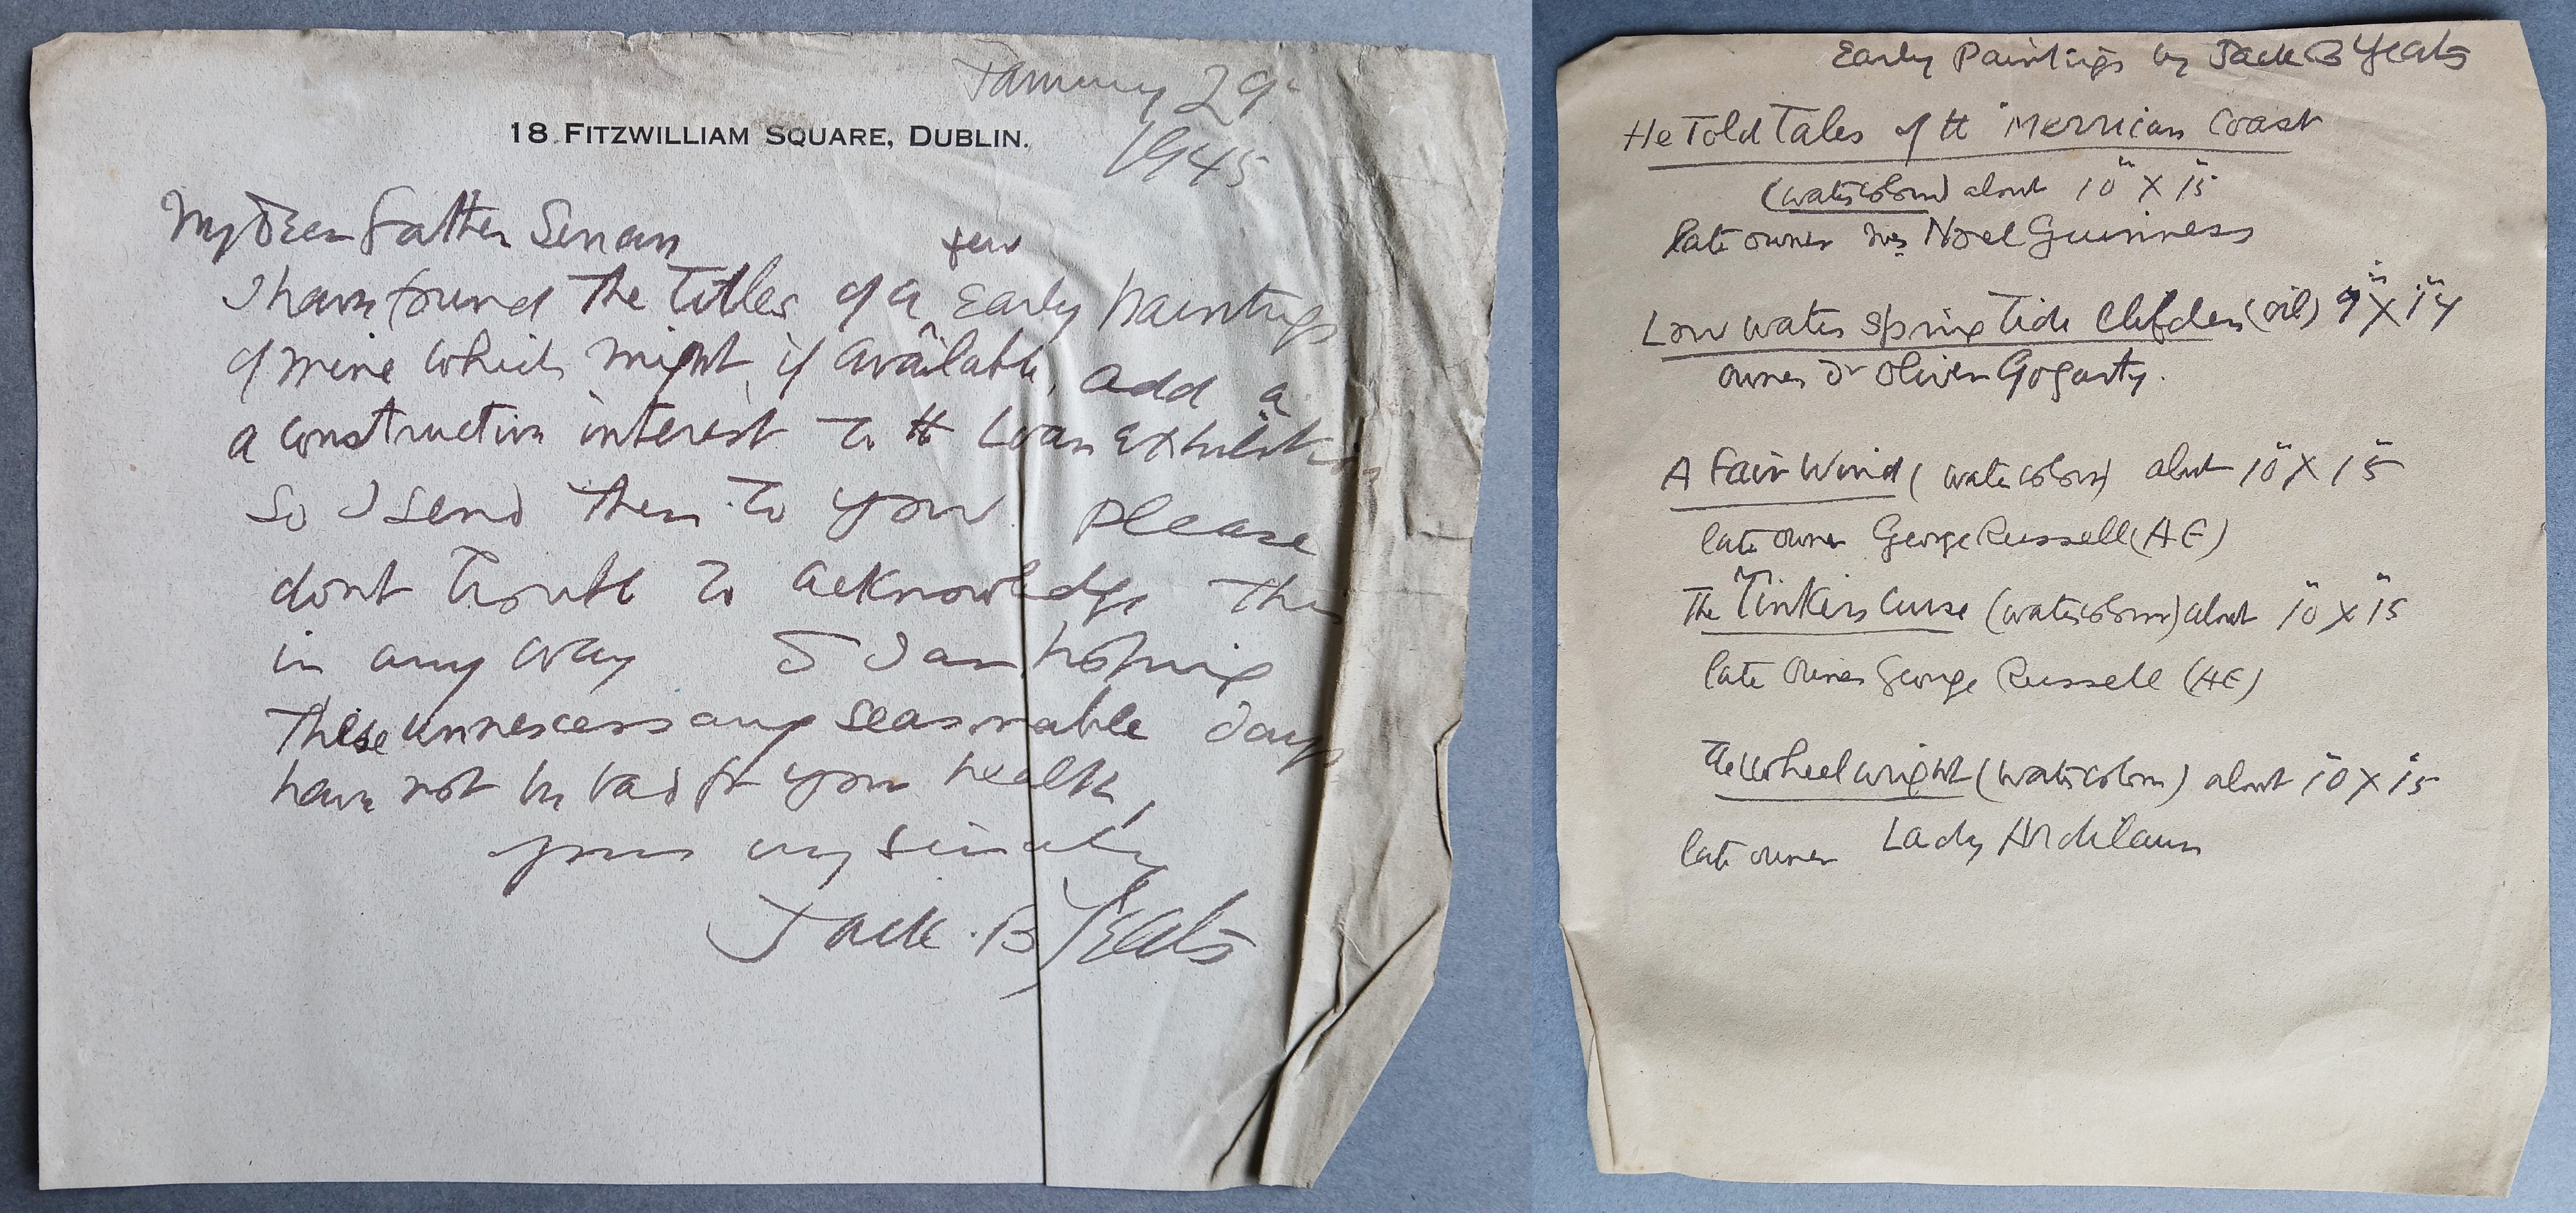 January 29
1945
18 FITZWILLIAM SQUARE, DUBLIN.
My Dear Father Senan
few
I have found the titles of a Early Paintings
of mine which might, if available, add a
a constructive interest to the Loan Exhibition
So I send them to you Please
dont trouble to acknowledge this
in any way I am hoping
These unnescessary seasonable days
have not be bad for your health,
yours very sincerely
Jack B Yeats
Early Paintings by Jack B Yeats
He Told Tales of the Merrican Coast
(watercolour) about 10" X 15"
late owner Mrs Noel Guinness
Low water Spring Tide Clifden (oil) 9" X 14"
owner Dr Oliver Gogarty.
A Fair Wind (watercolour) about 10" X 15"
late owner George Russell (AE)
The Tinkers Curse (watercolour) about 10" X 15"
late owner George Russell (AE)
The Wheelwright (watercolour) about 10" X 15"
late owner Lady Ardilaun